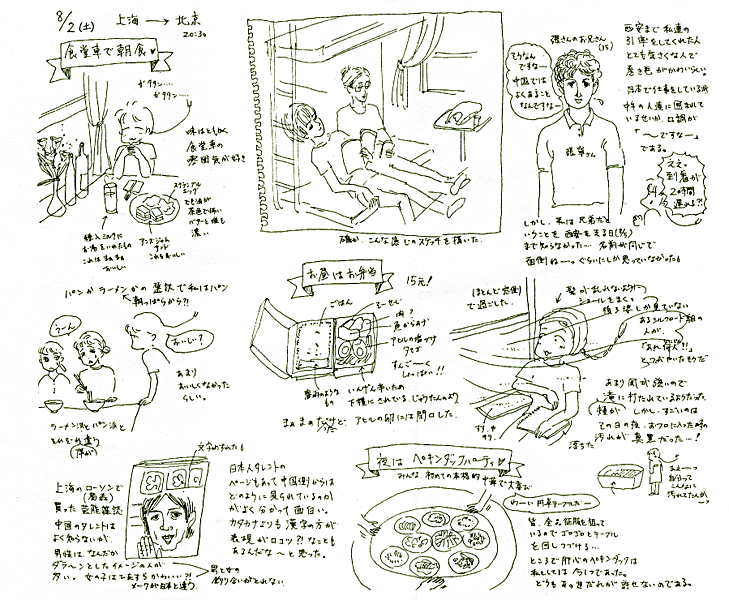 8/2(土) 上海 → 北京
20:30
食堂車で朝食♥
ガタン…
ガタン…
味はともかく
食堂車の
雰囲気が好き
スクランブル
エッグ
でも油が
茶色で怖い
バターと塩も
濃い
粉入ミルクに
お湯をいれたもの
これはまあまあ
おいしい
アンズジャム
サンド
これもおいしい
パンかラーメンかの選択で私はパン
朝っぱらから?!
うーん
おいしい?
あまり
おいしくなかった
らしい。
ラーメン派とパン派と
それぞれ違う
磯が、こんな感じのスケッチを描いた。
張さんのお兄さん
(15)
そうなん
ですな〜
中国では
よくあること
なんですな〜
張寧さん
西安まで私達の
引率をしてくれた人
とても気さくな人で
巻き毛がかわいらしい。
日本で仕事をしている時
中年の人達に囲まれて
いるせいか、口調が
「〜ですな〜」
である。
ええ。
到着が
2時間
遅れる?!
しかし、私は兄弟だと
いうことを西安を去る日(8/5)
まで知らなかった…名前が同じで
面倒ね〜。ぐらいにしか思っていなかった
お昼はお弁当
15元!
ごはん
ソーセージ
肉?
魚のからあげ
アヒルの塩づけ
タマゴ
すんご〜く
しょっぱい!!
いんげん辛いため
下種にされている。じゅうたんのよう
まあまあだけど、アヒルの卵には閉口した。
ほとんど窓側
で過ごした。
髪が乱れないように
ショールをまく。
後ろ姿しか見ていない
あるシルクロード組の
人が、
「あれ 何人?!」
とつぶやいたそうだ
あまり風が強いので
滝に打たれているようだった
しかし、すごいのは
この日の夜、おフロに入った時の
汚れが真黒だった…!
えぇ〜
自分って
こんなに
汚れてたんか〜
文字がすんだも
上海のローソンで
買った芸能雑誌
中国のタレントは
よく知らないが、
男性は、なんだか
ダラ〜ンとしたイメージの人が
多い。女の子は
かわいい?!
メークが日本と違う
男と女の
釣り合いがとれない。
日本人タレントの
ページもあって中国側からは
どのように見られているのか
がよく分かって面白い。
カタカナよりも漢字の方が
表現がロコツ?!なことも
あるんだな〜と思った。
夜はペキンダックパーティ♥
みんな、初めての本格的中華で大喜び
わーい 円卓テーブルだー
皆、全品征服を狙って
いるのでゴロゴロとテーブル
を回しつづける…
ところで肝心のペキンダックは
私としては今1つであった。
どうもあのあまだれが許せないのである。